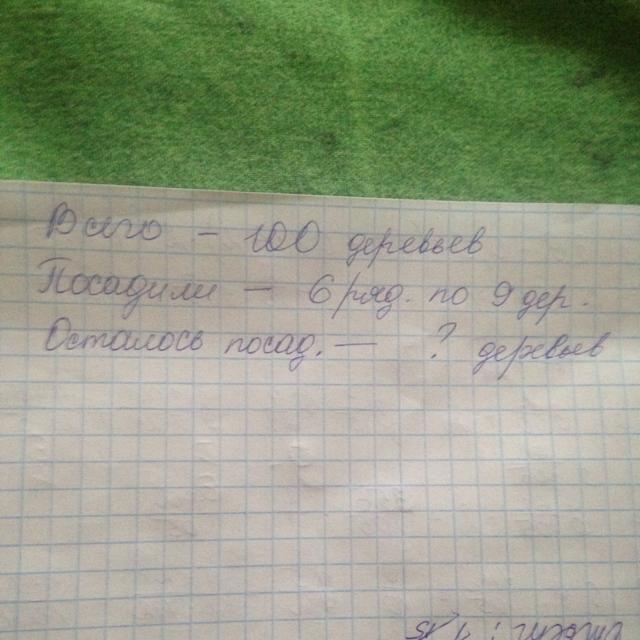 Всего — 100 деревьев
Посадили — 6 ряд. по 9 дер.
Осталось посад. — ? деревьев